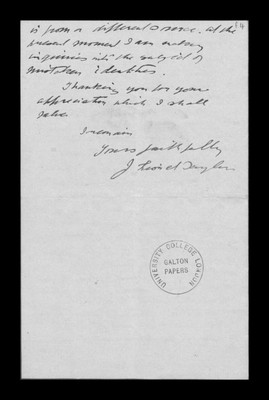 14
is from a different source. At the
present moment I am making
inquiries into the subject of
mistaken identities.
Thanking you for your
appreciation which I shall
value
I remain
Yours faithfully
J Lionel Tayler
UNIVERSITY COLLEGE LONDON
GALTON
PAPERS